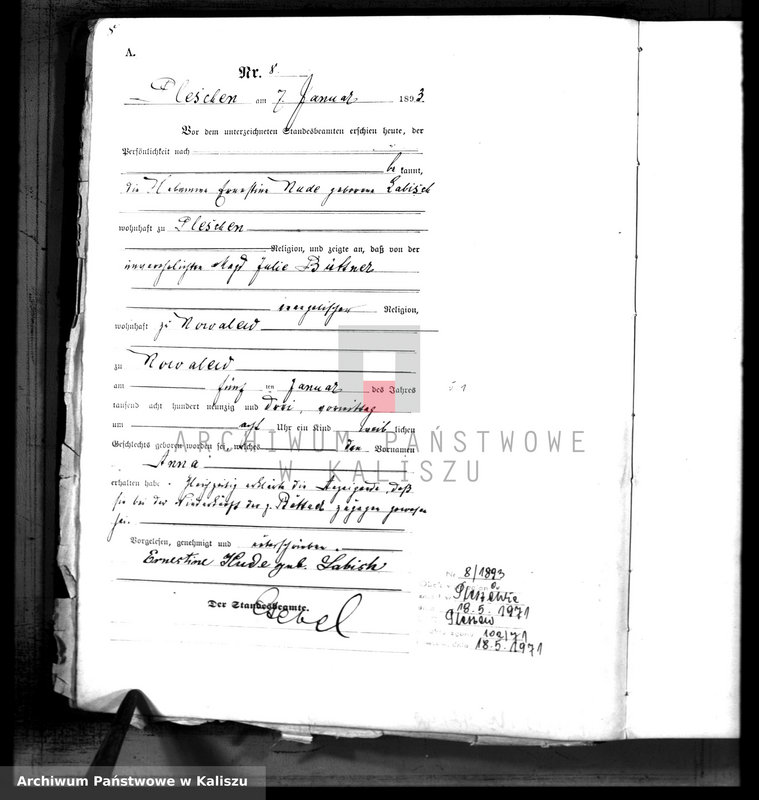 8
A.
Nr. 8
Pleschen am 7. Januar 1893
Vor dem unterzeichneten Standesbeamten erschien heute, der
Persönlichkeit nach
be kannt,
die Hebamme Ernestine Hude geborene Labisch
wohnhaft zu Pleschen
Religion, und zeigte an, daß von der
unverehelichten Magd Julie Büttner
evangelischer Religion,
wohnhaft zu Nowolew
zu Nowolew
am fünf ten Januar des Jahres
tausend acht hundert neunzig und drei, vormittag
um acht Uhr ein Kind weib lichen
Geschlechts geboren worden sei, welches den Vornamen
Anna
erhalten habe. Gleichzeitig erklärte die Anzeigende, daß
sie bei der Niederkunft der p. Büttner zugegen gewesen
sei.
Vorgelesen, genehmigt und unterschrieben.
Ernestine Hude geb. Labisch
Der Standesbeamte.
8/1893
Pleszewie
18.5.1971
Pleszew
18.5.1971
ARCHIWUM PAŃSTWOWE
W KALISZU
Archiwum Państwowe w Kaliszu